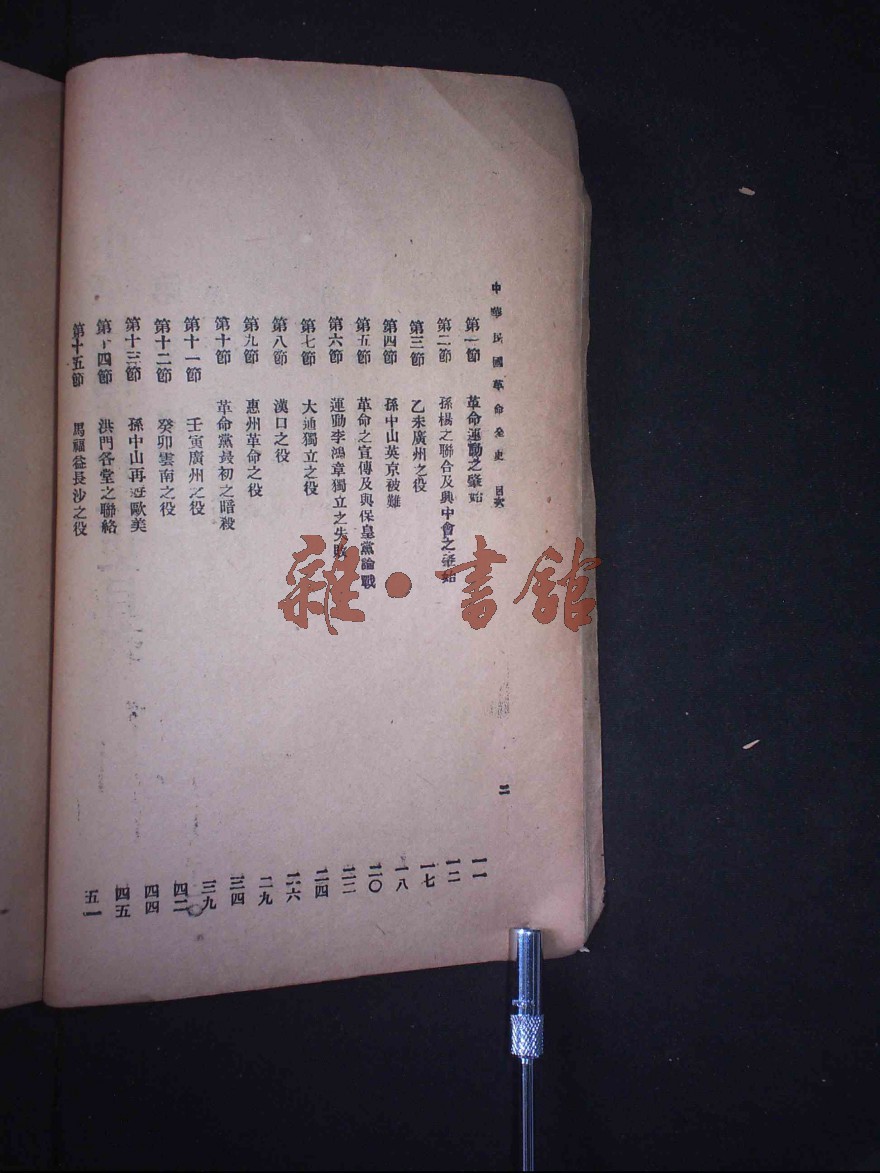 中華民國革命全史　目次　二
第一節　革命運動之肇始　一一
第二節　孫楊之聯合及興中會之肇始　一二
第三節　乙未廣州之役　一七
第四節　孫中山英京被難　一八
第五節　革命之宣傳及與保皇黨論戰　二〇
第六節　運動李鴻章獨立之失敗　二三
第七節　大通獨立之役　二四
第八節　漢口之役　二六
第九節　惠州革命之役　二九
第十節　革命黨最初之暗殺　三四
第十一節　壬寅廣州之役　三九
第十二節　癸卯雲南之役　四二
第十三節　孫中山再遊歐美　四四
第十四節　洪門各堂之聯絡　四五
第十五節　馬福益長沙之役　五一
雜·書館